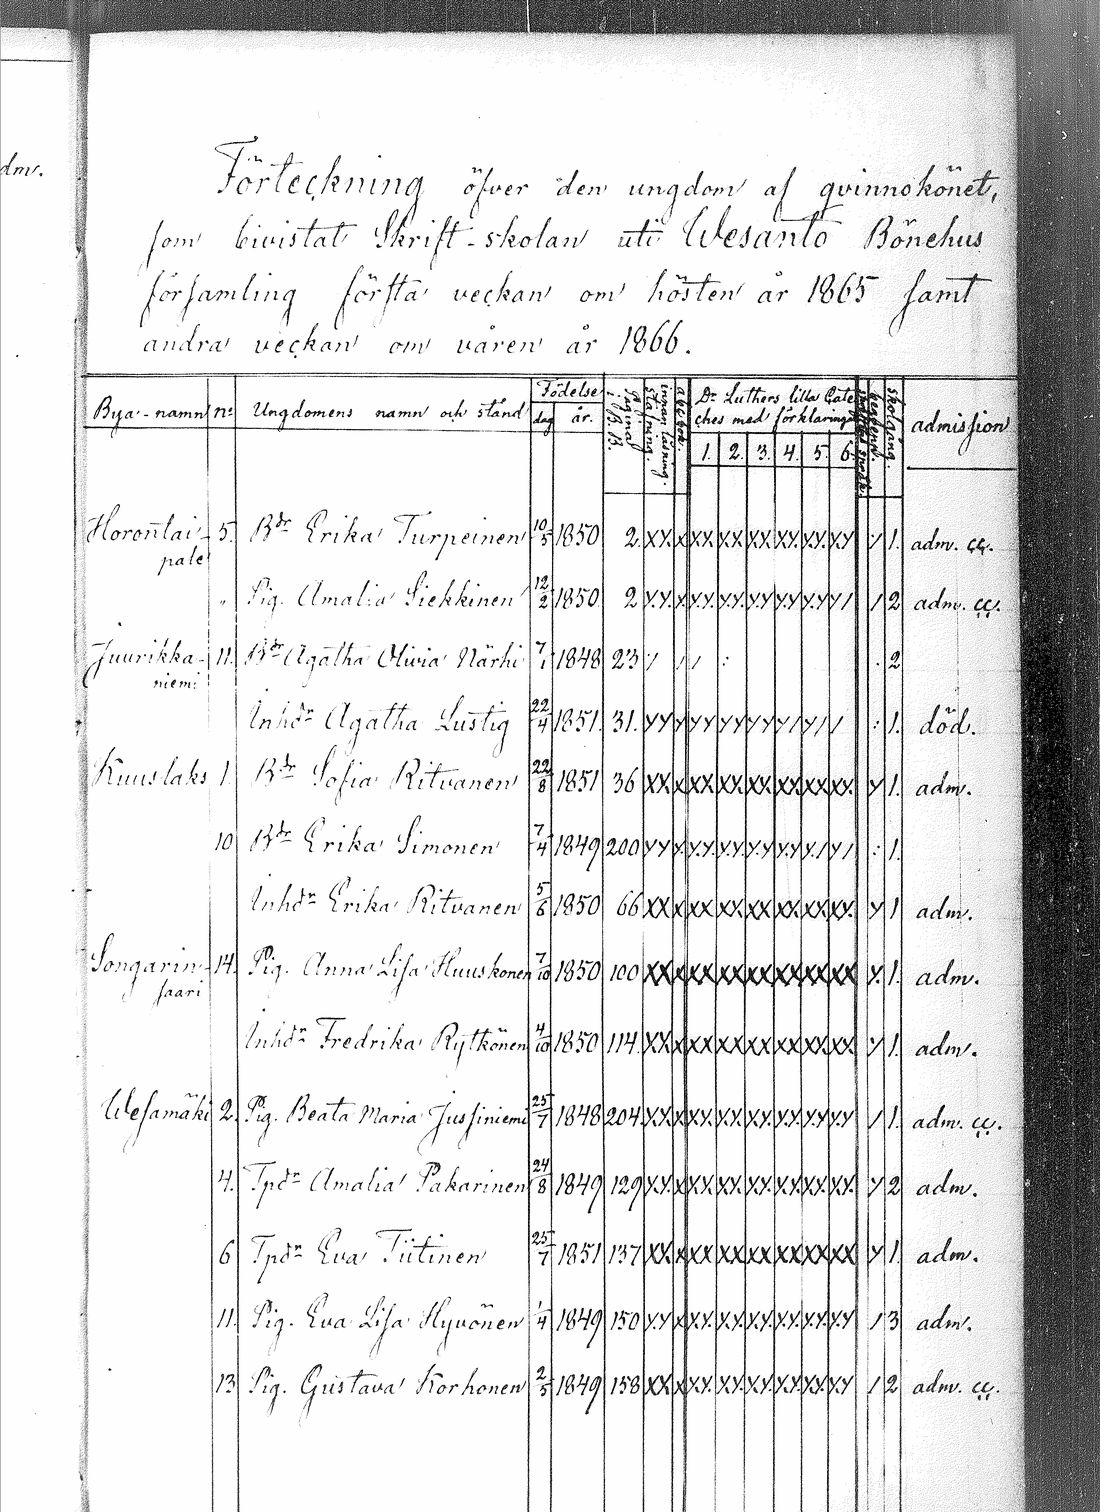 dm.
Förteckning öfver den ungdom af qvinnokönet,
som bivistat Skrift-skolan uti Wesanto Bönehus
församling första veckan om hösten år 1865 samt
andra veckan om våren år 1866.
Bya-namn n:o Ungdomens namn och stånd Födelse dag år. pagina i B.B. innan läsning stafning. abcbok. Dr Luthers lilla Cate
ches med förklaring skolgång. admission
1. 2. 3. 4. 5. 6.
Horontai- 5. Bdr Erika Turpeinen 10/5 1850 2. XX X XX XX XX XX XX XY y 1. adm. cç.
pale
" Pig. Amalia Siekkinen 12/2 1850 2 y.y. x x.y. y.y. y.y y.y. y.y y/ / 2 adm. cç.
Juurikka- 11. Bdr Agatha Olivia Närhi 7/1 1848 23 / / / / : . 2
niemi
Inhdr Agatha Lustig 22/4 1851. 31. yy y yy yy yy y/ y/ / : 1. död.
Kuuslaks 1. Bdr Sofia Ritvanen 22/8 1851 36 XX X XX XX. XX. XX XX XX. y 1. adm.
10 Bdr Erika Simonen 7/4 1849 200 yy y y.y. y.y. y.y y.y. y./ y/ : 1.
Inhdr Erika Ritvanen 5/6 1850 66 XX X XX XX. XX XX. XX XX. y 1 adm.
Songarin- 14. Pig. Anna Lisa Huuskonen 7/10 1850 100 XX X XX XX XX XX XX XX y. 1. adm.
saari
Inhdr Fredrika Rytkönen 4/10 1850 114. XX X XX XX. XX XX XX. XX y 1. adm.
Wesamäki 2. Pig. Beata Maria Jussiniemi 25/7 1848 204. x.y. x xx. x.y. x.y. x.y. y.y y.y / 1. adm. cç.
4. Tpdr Amalia Pakarinen 24/8 1849 129 xy. x xx. xx. xx. xx. xx. xx. y 2 adm.
6 Tpdr Eva Tiitinen 25/7 1851 137 XX X XX XX XX XX XX XX y 1. adm.
11. Pig. Eva Lisa Hyvönen 1/4 1849 150 y.y x xy. x.y. x.y. x.y. x.y. x.y / 3 adm.
13 Pig. Gustava Korhonen 2/5 1849 158 XX X x.y. xx. x.y. x.y. x.y. x.y / 2 adm. cç.